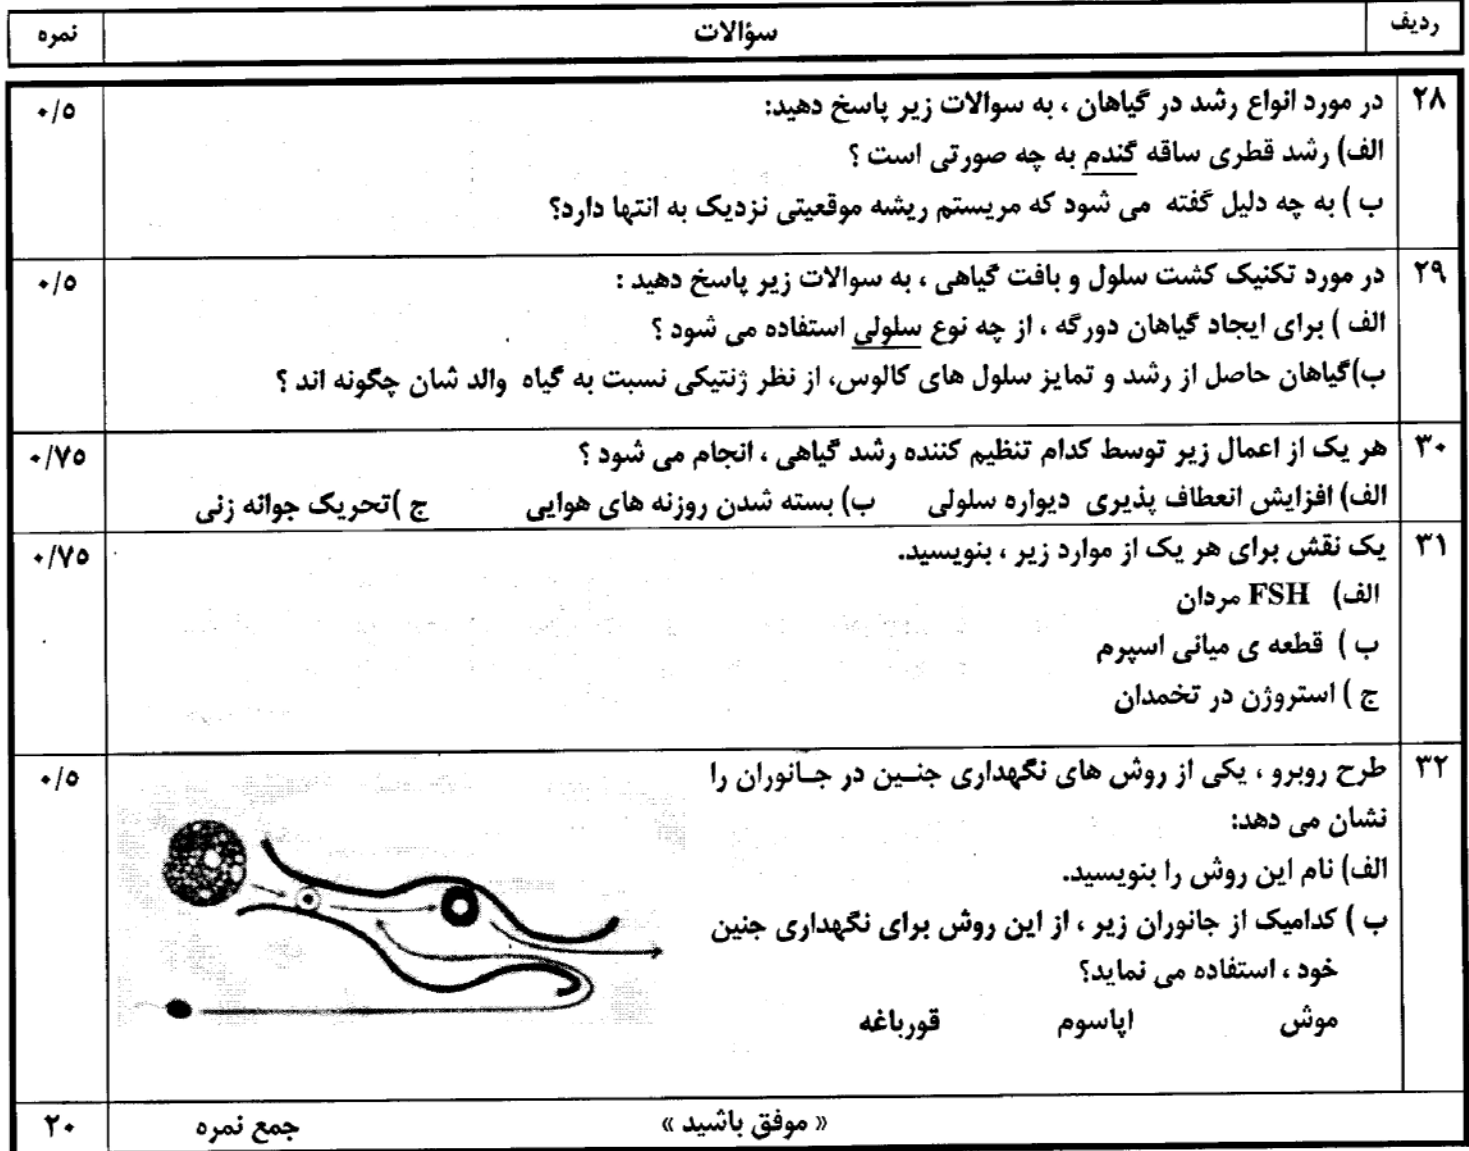 ردیف سؤالات نمره
۲۸ در مورد انواع رشد در گیاهان ، به سوالات زیر پاسخ دهید: ۰/۵
الف) رشد قطری ساقه گندم به چه صورتی است ؟
ب ) به چه دلیل گفته می شود که مریستم ریشه موقعیتی نزدیک به انتها دارد؟
۲۹ در مورد تکنیک کشت سلول و بافت گیاهی ، به سوالات زیر پاسخ دهید : ۰/۵
الف ) برای ایجاد گیاهان دورگه ، از چه نوع سلولی استفاده می شود ؟
ب)گیاهان حاصل از رشد و تمایز سلول های کالوس، از نظر ژنتیکی نسبت به گیاه والد شان چگونه اند ؟
۳۰ هر یک از اعمال زیر توسط کدام تنظیم کننده رشد گیاهی ، انجام می شود ؟ ۰/۷۵
الف) افزایش انعطاف پذیری دیواره سلولی ب) بسته شدن روزنه های هوایی ج )تحریک جوانه زنی
۳۱ یک نقش برای هر یک از موارد زیر ، بنویسید. ۰/۷۵
الف) FSH مردان
ب ) قطعه ی میانی اسپرم
ج ) استروژن در تخمدان
۳۲ طرح روبرو ، یکی از روش های نگهداری جنـین در جـانوران را ۰/۵
نشان می دهد:
الف) نام این روش را بنویسید.
ب ) کدامیک از جانوران زیر ، از این روش برای نگهداری جنین
خود ، استفاده می نماید؟
موش اپاسوم قورباغه
« موفق باشید » جمع نمره ۲۰